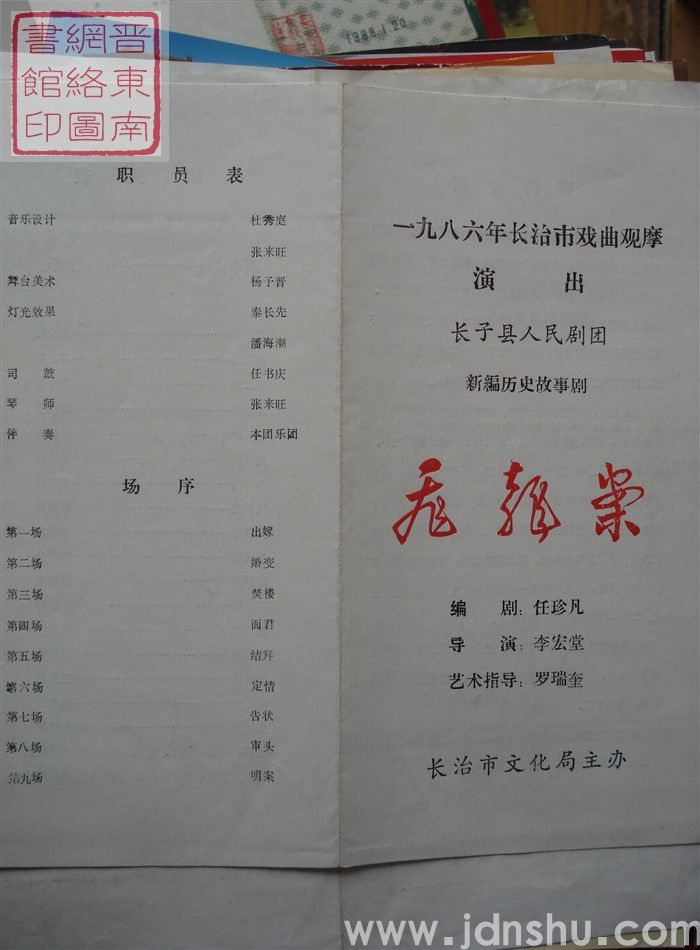 晋東南
網絡圖
書館印
职员表
音乐设计 杜秀庭
张来旺
舞台美术 杨予晋
灯光效果 秦长先
潘海潮
司鼓 任书庆
琴师 张来旺
伴奏 本团乐团
场序
第一场 出嫁
第二场 婚变
第三场 焚楼
第四场 面君
第五场 结拜
第六场 定情
第七场 告状
第八场 审头
第九场 明案
一九八六年长治市戏曲观摩
演出
长子县人民剧团
新编历史故事剧
案
编剧：任珍凡
导演：李宏堂
艺术指导：罗瑞奎
长治市文化局主办
www.jdnshu.com